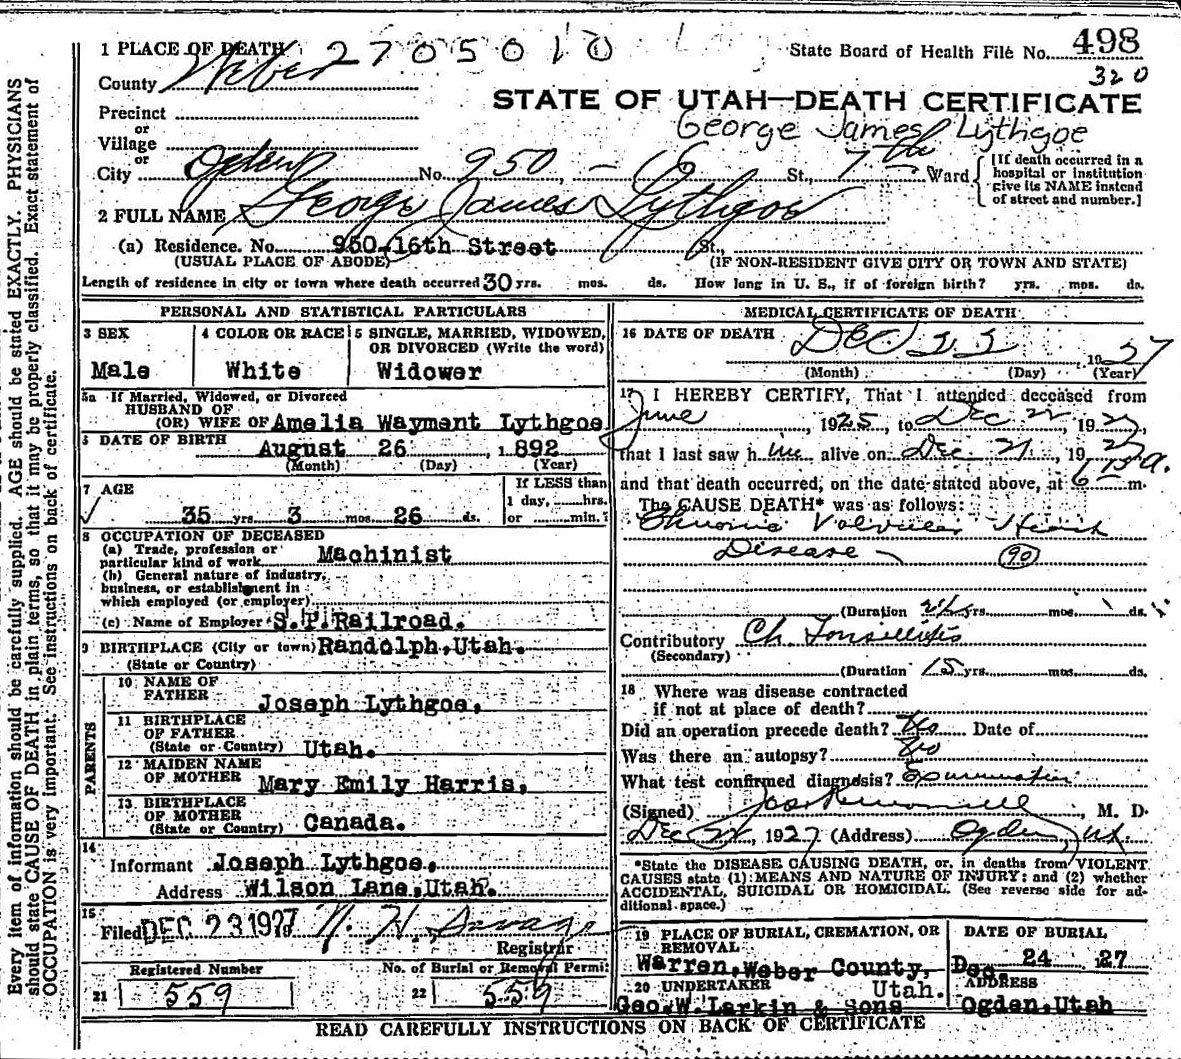 Every item of information should be carefully supplied. AGE should be stated EXACTLY. PHYSICIANS
should state CAUSE OF DEATH in plain terms, so that it may be properly classified. Exact statement of
OCCUPATION is very important. See instructions on back of certificate.
1 PLACE OF DEATH 2705010
State Board of Health File No. 498
County Weber
320
STATE OF UTAH—DEATH CERTIFICATE
Precinct
George James Lythgoe
or
Village
or
City Ogden No. 950 - 16 St., 7th Ward
[If death occurred in a
hospital or institution
give its NAME instead
of street and number.]
2 FULL NAME George James Lythgoe
(a) Residence. No. 950-16th Street St.,
(USUAL PLACE OF ABODE) (IF NON-RESIDENT GIVE CITY OR TOWN AND STATE)
Length of residence in city or town where death occurred 30 yrs. mos. ds. How long in U. S., if of foreign birth? yrs. mos. ds.
PERSONAL AND STATISTICAL PARTICULARS
3 SEX
Male
4 COLOR OR RACE
White
5 SINGLE, MARRIED, WIDOWED,
OR DIVORCED (Write the word)
Widower
5a If Married, Widowed, or Divorced
HUSBAND OF
(OR) WIFE OF Amelia Wayment Lythgoe
6 DATE OF BIRTH
August 26, 1892
(Month) (Day) (Year)
7 AGE
35 yrs. 3 mos. 26 ds.
If LESS than
1 day, hrs.
or min.?
8 OCCUPATION OF DECEASED
(a) Trade, profession or
particular kind of work Machinist
(b) General nature of industry,
business, or establishment in
which employed (or employer)
(c) Name of Employer S.P.Railroad.
9 BIRTHPLACE (City or town) Randolph,Utah.
(State or Country)
PARENTS
10 NAME OF
FATHER Joseph Lythgoe.
11 BIRTHPLACE
OF FATHER
(State or Country) Utah.
12 MAIDEN NAME
OF MOTHER Mary Emily Harris,
13 BIRTHPLACE
OF MOTHER
(State or Country) Canada.
14
Informant Joseph Lythgoe.
Address Wilson Lane,Utah.
15
Filed DEC 23 1927 Registrar
Registered Number
21 559
No. of Burial or Removal Permit
22 559
MEDICAL CERTIFICATE OF DEATH
16 DATE OF DEATH Dec. 22 1927
(Month) (Day) (Year)
17 I HEREBY CERTIFY, That I attended deceased from
June, 1925, to Dec 22, 1927,
that I last saw him alive on Dec 21, 1927,
and that death occurred, on the date stated above, at 6 15 a. m.
The CAUSE DEATH* was as follows:
Chronic Valvular Heart
Disease 90
(Duration 2½ yrs. mos. ds.
Contributory Ch. Tonsillitis
(Secondary)
(Duration 15 yrs. mos. ds.
18 Where was disease contracted
if not at place of death?
Did an operation precede death? No Date of
Was there an autopsy? No
What test confirmed diagnosis? Examination
(Signed) , M. D.
Dec 22, 1927 (Address) Ogden, Ut.
*State the DISEASE CAUSING DEATH, or, in deaths from VIOLENT
CAUSES state (1) MEANS AND NATURE OF INJURY: and (2) whether
ACCIDENTAL, SUICIDAL OR HOMICIDAL. (See reverse side for ad-
ditional space.)
19 PLACE OF BURIAL, CREMATION, OR
REMOVAL
Warren,Weber County,
Utah.
DATE OF BURIAL
Dec. 24 27
20 UNDERTAKER
Geo.W.Larkin & Sons
ADDRESS
Ogden,Utah
READ CAREFULLY INSTRUCTIONS ON BACK OF CERTIFICATE